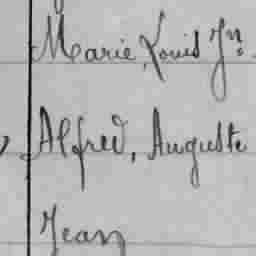 Marie, Louis Jn.
Alfred, Auguste
Jean